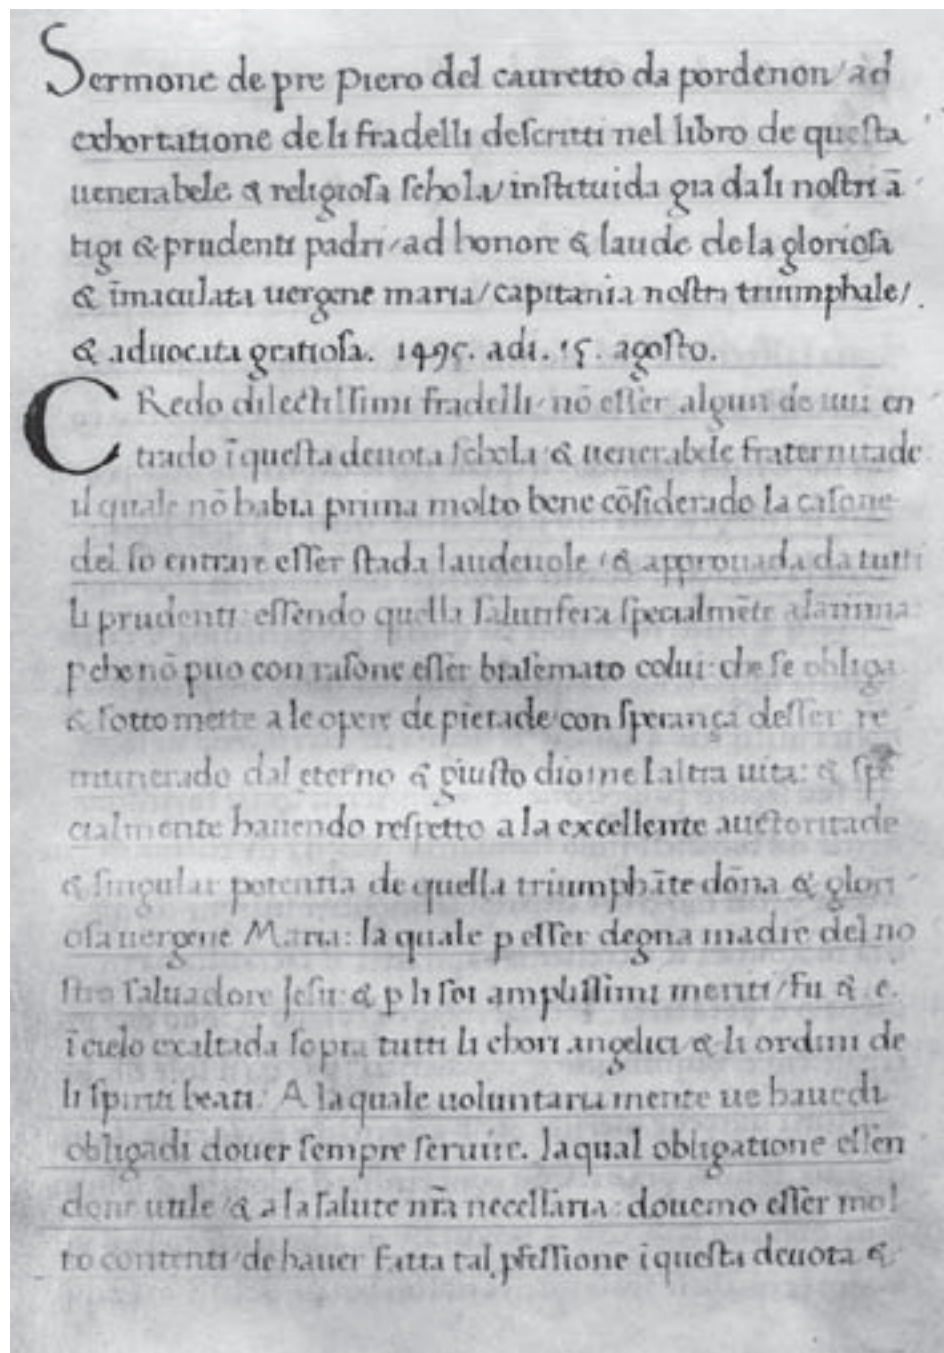 Sermone de pre piero del cauretto da pordenon/ ad
exhortatione de li fradelli descritti nel libro de questa
uenerabele & religiosa schola/ instituida gia da li nostri ā
tigi & prudenti padri/ ad honore & laude de la gloriosa
& īmaculata uergene maria/ capitania nostra triumphale/
& aduocata gratiosa. 1495. adi. 15. agosto.
CRedo dilectissimi fradelli/ nō esser algun de uui en
trado ī questa deuota schola/ & uenerabele fraternitade:
il quale nō habia prima molto bene cōsiderado la casone
del so entrare esser stada laudeuole/ & approuada da tutti
li prudenti: essendo quella salutifera specialmēte alanima:
p che nō puo con rasone esser biasemato colui: che se obliga
& sotto mette a le opere de pietade/ con sperança desser re
munerado dal eterno & giusto dio ine laltra uita: & spe
cialmente hauendo respetto a la excellente auctoritade
& singular potentia de quella triumphāte dōna & glori
osa uergene Maria: la quale p esser degna madre del no
stro saluadore Jesu: & p li soi amplissimi meriti/ fu & e.
ī cielo exaltada sopra tutti li chori angelici/ & li ordini de
li spiriti beati: A la quale uoluntariamente ue hauedi
obligadi douer sempre seruire. la qual obligatione essen
done utile/ & a la salute nr̄a necessaria: douemo esser mol
to contenti/ de hauer fatta tal pfessione ī questa deuota &